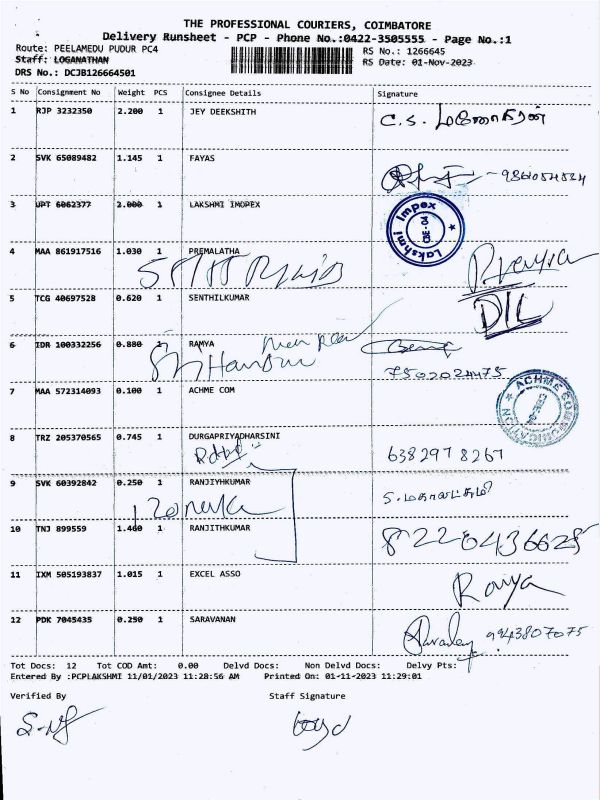 THE PROFESSIONAL COURIERS, COIMBATORE
Delivery Runsheet - PCP - Phone No.:0422-3505555 - Page No.:1
Route: PEELAMEDU PUDUR PC4 RS No.: 1266645
Staff: LOGANATHAN RS Date: 01-Nov-2023
DRS No.: DCJB126664501
S No Consignment No Weight PCS Consignee Details Signature
1 RJP 3232350 2.200 1 JEY DEEKSHITH C.S. மனோகரன்
2 SVK 65089482 1.145 1 FAYAS
3 UPT 6062377 2.000 1 LAKSHMI IMOPEX Lakshmi Impex
4 MAA 861917516 1.030 1 PREMALATHA
5 TCG 40697528 0.620 1 SENTHILKUMAR
6 IDR 100332256 0.880 1 RAMYA
7502024475
7 MAA 572314093 0.100 1 ACHME COM ACHME COMMUNICATION
8 TRZ 205370565 0.745 1 DURGAPRIYADHARSINI
6382978267
9 SVK 60392842 0.250 1 RANJIYHKUMAR
10 TNJ 899559 1.460 1 RANJITHKUMAR 8220436628
11 IXM 505193837 1.015 1 EXCEL ASSO Ramya
12 PDK 7045435 0.250 1 SARAVANAN 9943807075
Tot Docs: 12 Tot COD Amt: 0.00 Delvd Docs: Non Delvd Docs: Delvy Pts:
Entered By :PCPLAKSHMI 11/01/2023 11:28:56 AM Printed On: 01-11-2023 11:29:01
Verified By Staff Signature